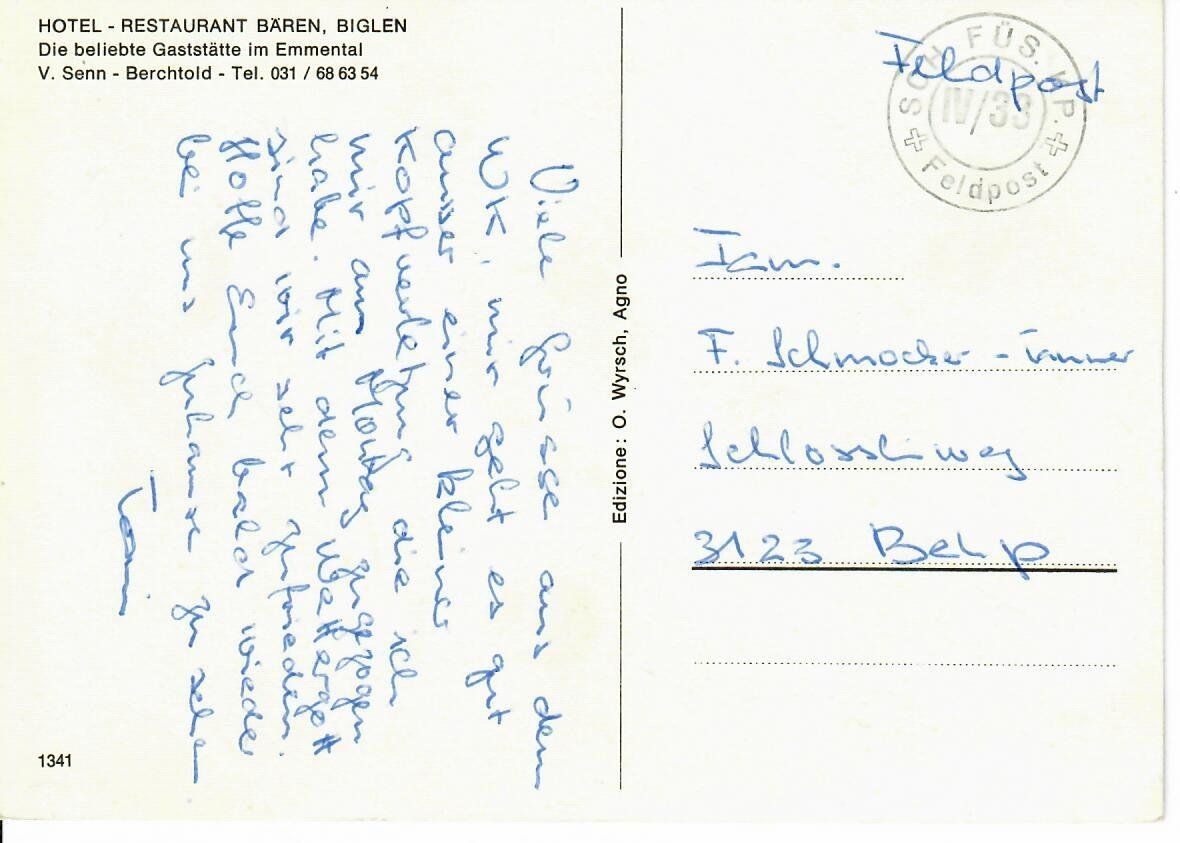 HOTEL - RESTAURANT BÄREN, BIGLEN
Die beliebte Gaststätte im Emmental
V. Senn - Berchtold - Tel. 031 / 68 63 54
Viele Grüsse aus dem
WK, mir geht es gut
ausser einer kleine
Kopfverletzung die ich
mir am Montag zugezogen
habe. Mit dem Wettergott
sind wir sehr zufrieden.
Hoffe Euch bald wieder
bei uns zuhause zu sehen
1341
Edizione: O. Wyrsch, Agno
Feldpost
SCH. FÜS. KP.
IV/33
Feldpost
Fam.
F. Schmocker - Tanner
Schlossliweg
3123 Belp